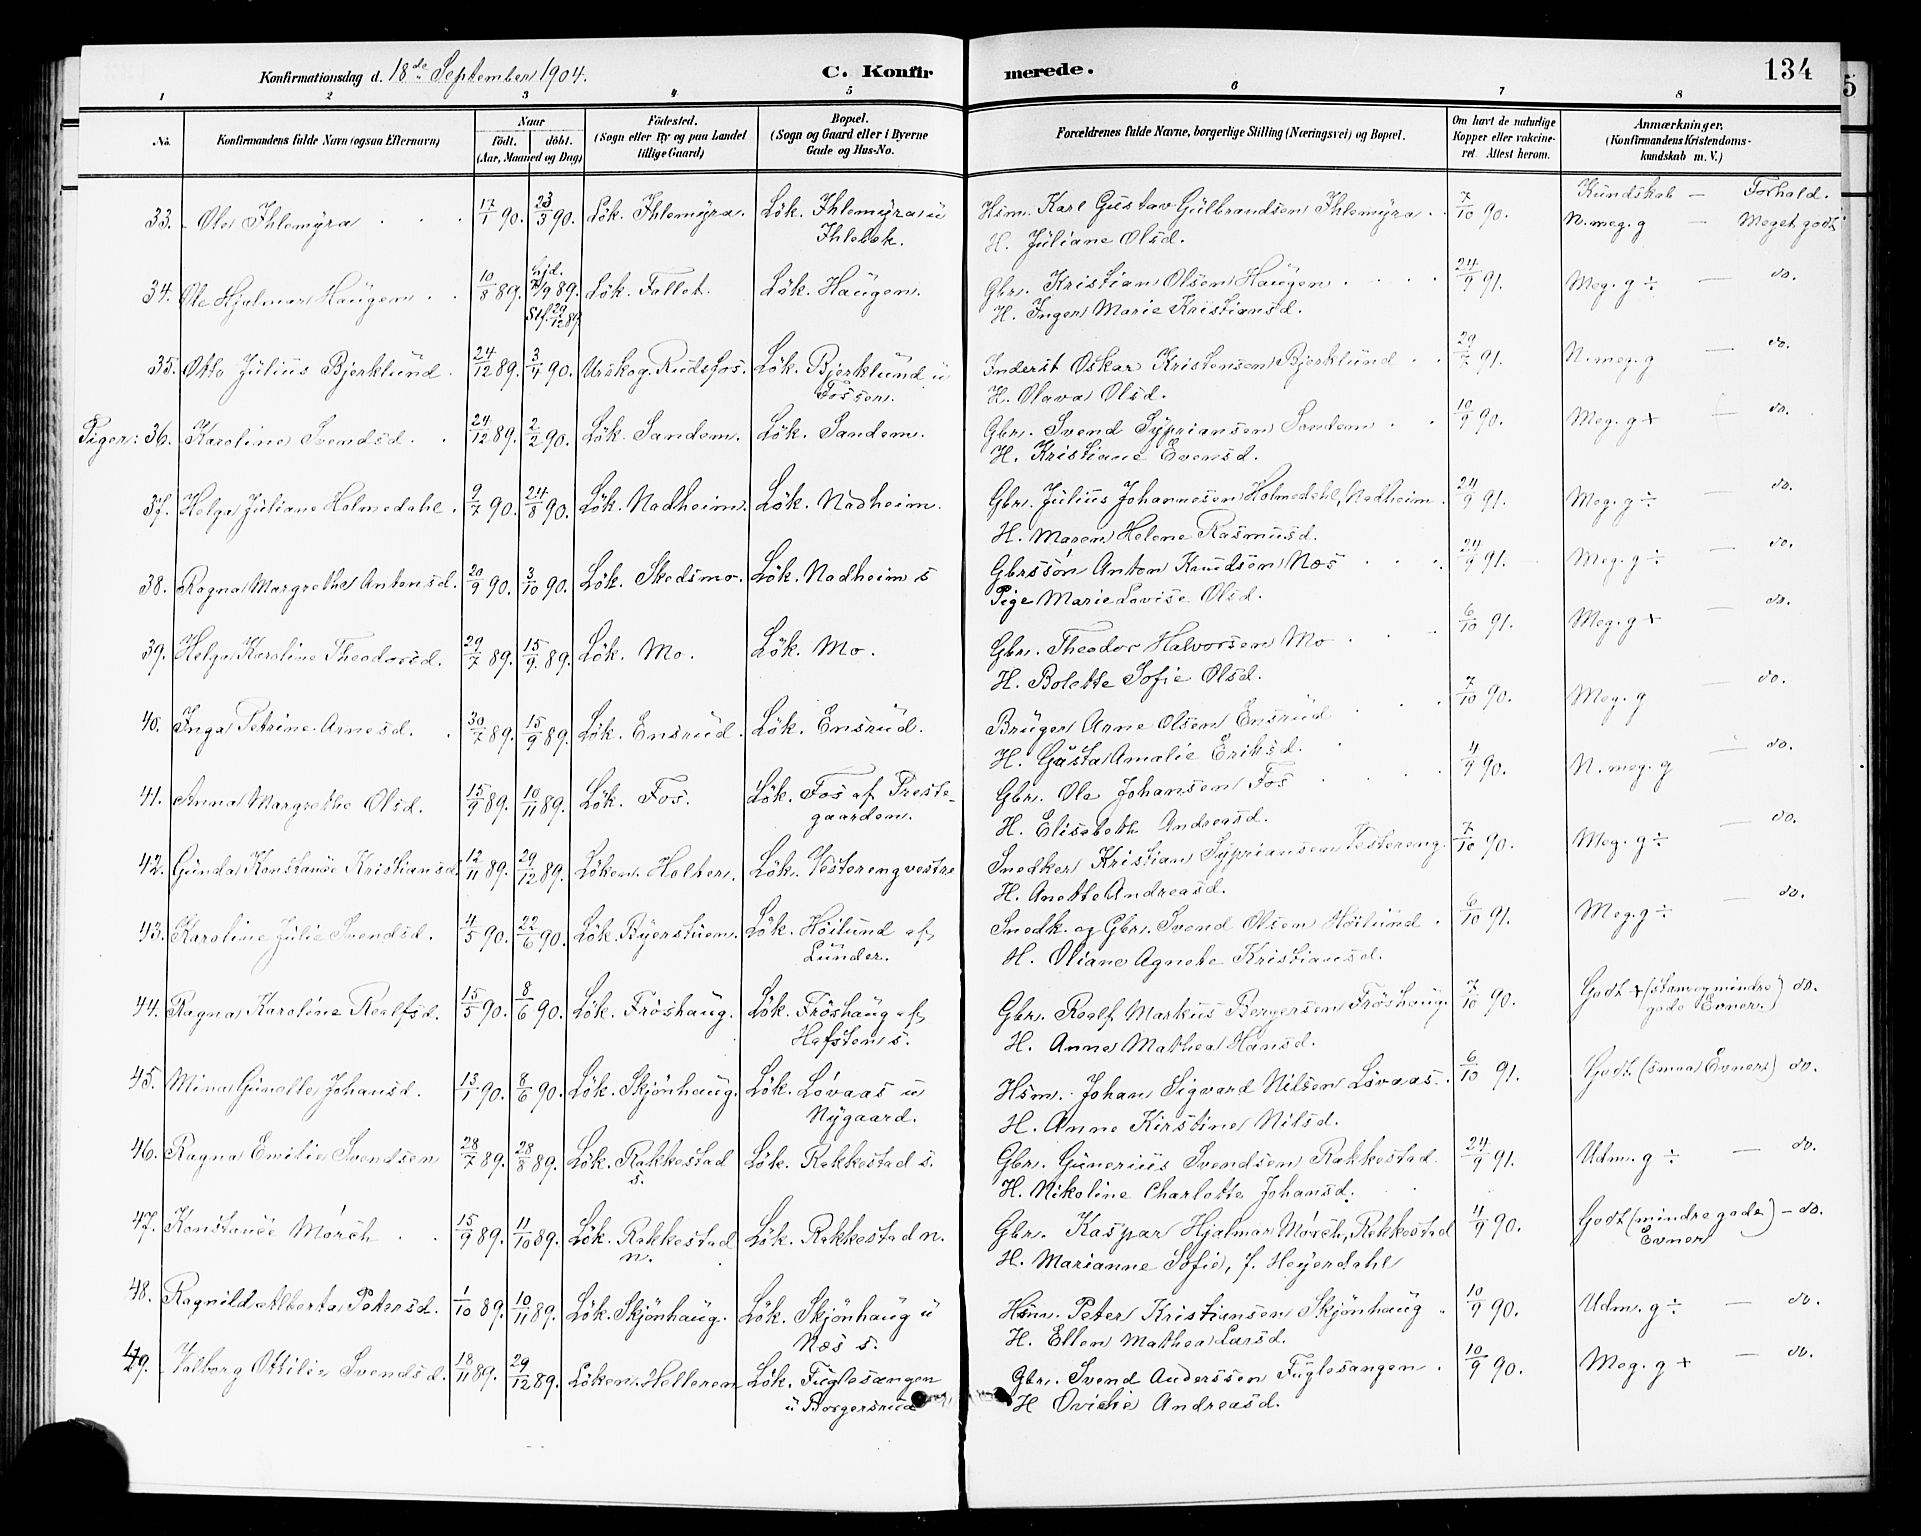 Konfirmationsdag d. 18de September 1904.
C. Konfirmerede.
134
5
1 2 3 4 5 6 7 8
No.
Konfirmandens fulde Navn (ogsaa Efternavn)
Naar
födt. döbt.
(Aar, Maaned og Dag)
Födested.
(Sogn eller By og paa Landet
tillige Gaard)
Bopæl.
(Sogn og Gaard eller i Byerne
Gade og Hus-No.
Forældrenes fulde Navne, borgerlige Stilling (Næringsvei) og Bopæl.
Om havt de naturlige
Kopper eller vakcine-
ret. Attest herom.
Anmærkninger.
(Konfirmandens Kristendoms-
kundskab m. V.)
Kundskab — Forhold.
33. Ole Ihlemyra 17/1 90. 23/3 90. Lök. Ihlemyra. Lök. Ihlemyra u Hsm. Karl Gustav Gulbrandsen Ihlemyra 7/10 90. N. meg. g — Meget godt
Ihlebek. H. Juliane Olsd.
34. Ole Hjalmar Haugen 10/8 89. hjd. /9 89. Lök. Fallet. Lök. Haugen. Gbr. Kristian Olsen Haugen 24/9 91. Meg. g ÷ — do.
Stf. 29/12 89. H. Inger Marie Kristiansd.
35. Otto Julius Bjerklund 24/12 89. 3/4 90. Urskog. Rudsfos. Lök. Bjerklund u Inderst Oskar Kristensen Bjerklund 29/7 91. N. meg. g — do.
Fossen. H. Olava Olsd.
Piger: 36. Karoline Svendsd. 24/12 89. 2/2 90. Lök. Sandem. Lök. Sandem. Gbr. Svend Sypriansen Sandem 10/9 90. Meg. g + — do.
H. Kristiane Evensd.
37. Helga Juliane Holmedahl 9/7 90. 24/8 90. Lök. Nadheim. Lök. Nadheim. Gbr. Julius Johannesen Holmedahl, Nadheim. 24/9 91. Meg. g ÷ — do.
H. Maren Helene Rasmusd.
38. Ragna Margrethe Antonsd. 20/9 90. 3/10 90. Lök. Skedsmo. Lök. Nadheim s Gbrssön Anton Knudsen Næs 24/9 91. Meg. g ÷ — do.
Pige Marie Lovise Olsd.
39. Helga Karoline Theodorsd. 29/7 89. 15/9 89. Lök. Mo. Lök. Mo. Gbr. Theodor Halvorsen Mo 6/10 91. Meg. g + — do.
H. Bolette Sofie Olsd.
40. Inga Petrine Arnesd. 30/7 89. 15/9 89. Lök. Ensrud. Lök. Ensrud. Bruger Arne Olsen Ensrud 7/10 90. Meg. g — do.
H. Gusta Amalie Eriksd.
41. Anna Margrethe Olsd. 15/9 89. 10/11 89. Lök. Fos. Lök. Fos af Preste- Gbr. Ole Johansen Fos 4/9 90. N. meg. g — do.
gaarden. H. Elisabeth Andreasd.
42. Gunda Konstanse Kristiansd. 12/11 89. 29/12 89. Löken. Holter. Lök. Vestereng vestre Snedker Kristian Sypriansen Vestereng. 7/10 90. Meg. g ÷ — do.
H. Anette Andreasd.
43. Karoline Julie Svendsd. 4/5 90. 22/6 90. Lök. Byerstuen. Lök. Höilund af Snedk. og Gbr. Svend Olsen Höilund 6/10 91. Meg. g ÷ — do.
Lunder. H. Oliane Agnete Kristiansd.
44. Ragna Karoline Roalfsd. 15/5 90. 8/6 90. Lök. Fröshaug. Lök. Fröshaug af Gbr. Roalf Markus Bergersen Fröshaug. 7/10 90. Godt + (stam. og mindre do.
Hafsten s. H. Anne Mathea Hansd. gode Evner.)
45. Mina Gunelle Johansd. 13/1 90. 8/6 90. Lök. Skjönhaug. Lök. Lövaas u Hsm. Johan Sigvard Nilsen Lövaas. 6/10 91. Godt (smaa Evner) do.
Nygaard. H. Anne Kirstine Nilsd.
46. Ragna Emilie Svendsen 28/7 89. 28/8 89. Lök. Rakkestad Lök. Rakkestad s. Gbr. Gunerius Svendsen Rakkestad. 24/9 91. Udm. g ÷ — do.
s. H. Nikoline Charlotte Johansd.
47. Konstanse Mörch 15/9 89. 11/10 89. Lök. Rakkestad Lök. Rakkestad n. Gbr. Kaspar Hjalmar Mörch, Rakkestad 4/9 90. Godt (mindre gode) – do.
n. H. Marianne Sofie, f. Heyerdahl Evner
48. Ragnild Alberta Petersd. 1/10 89. 10/11 89. Lök. Skjönhaug. Lök. Skjönhaug u Hsm. Peter Kristiansen Skjönhaug 10/9 90. Udm. g ÷ — do.
Næs s. H. Ellen Mathea Larsd.
49. Valborg Ottilie Svendsd. 18/11 89. 29/12 89. Löken. Helleren Lök. Fuglesangen Gbr. Svend Anderssen Fuglesangen. 10/9 90. Meg. g + — do.
u Borgersrud H Ovidie Andreasd.